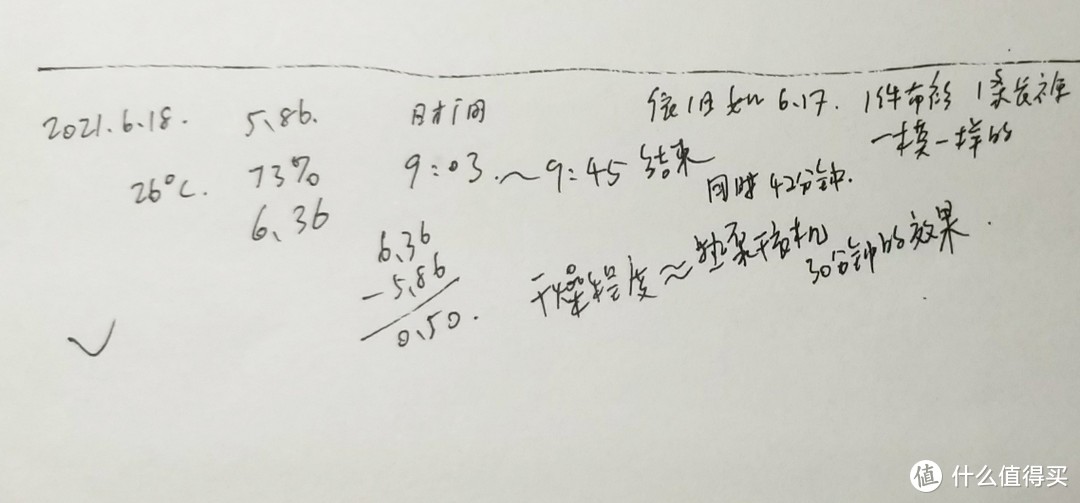 2021.6.18. 5.86. 时间 衣旧如6.17. 1件布衫 1条长裤
一模一样的
26℃. 73% 9:03.～9:45 结束
用时42分钟.
6.36
6.36
-5.86
0.50.
干燥程度≈热泵干衣机
30分钟的效果.
✓
值 什么值得买